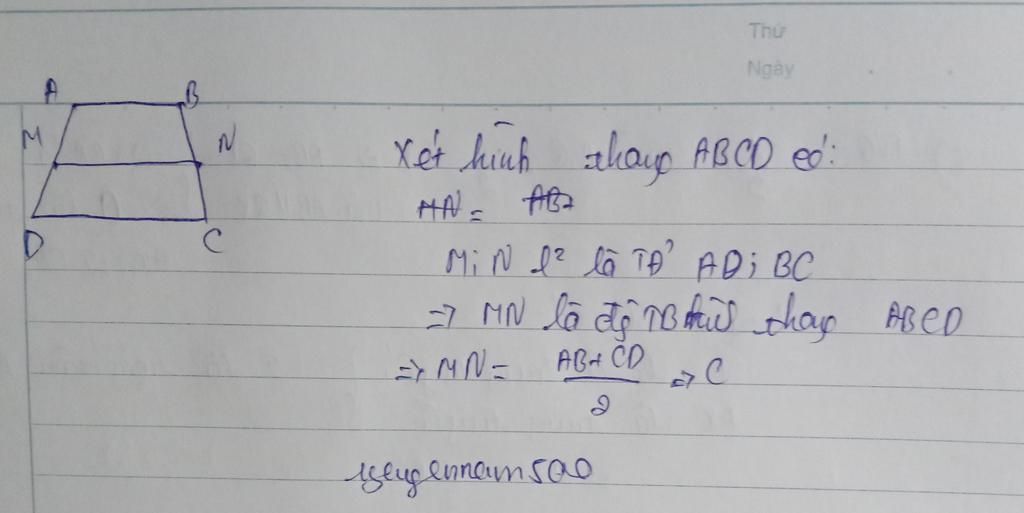 Thứ
Ngày
A B
M N
D C
Xét hình thang ABCD có:
MN = AB+
M; N l² là TĐ' AD; BC
=> MN là đg TB hìh thang ABCD
=> MN = AB+CD / 2 => C